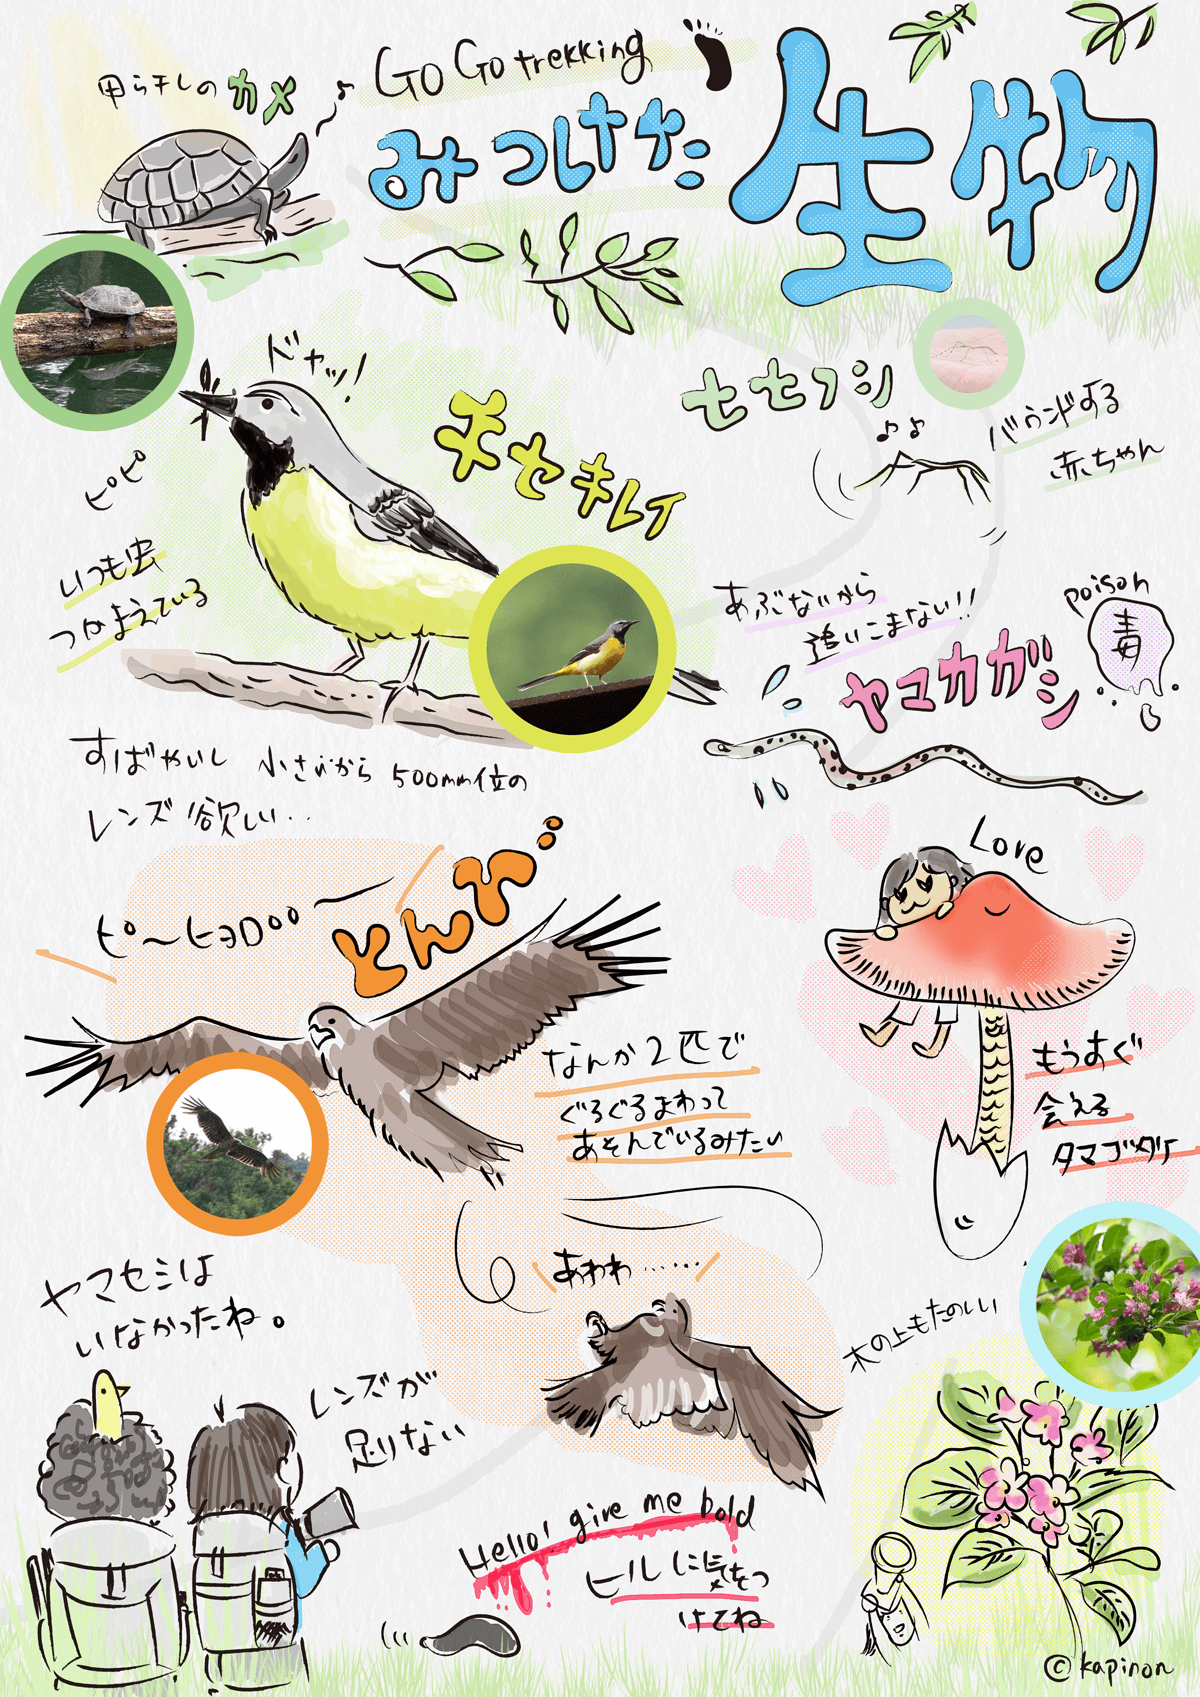 Go Go trekking
みつけた 生物
甲ら干しのカメ
ドヤッ!
キセキレイ
ピピ
いつも虫
つかまえている
すばやいし 小さいから 500mm位の
レンズ欲しい..
セセフシ
バウンドする
赤ちゃん
あぶないから
追いこまない!!
poison
毒
ヤマカガシ
Love
もうすぐ
会える
タマゴダケ
ピ〜ヒョロoo
とんび
なんか2匹で
ぐるぐるまわって
あそんでいるみたい
あわわ……
ヤマセミは
いなかったね。
レンズが
足りない
木の上もたのしい
Hello! give me bold
ヒルに気をつ
けてね
© kapinon